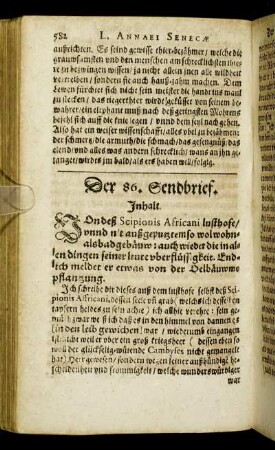 582 L. ANNAEI SENECÆ
außrichten. Es seind gewisse thier-bezähmer / welche die
grauwsamsten und den menschen am schrecklichsten thie-
re zu bezwingen wissen / ja nicht allein jnen alle wildheit
vertreiben / sondern sie auch hauß-zahm machen. Dem
Lewen förchtet sich nicht sein meister die hand ins maul
zu stecken / das tiegerthier wirdt geküsset von seinem be-
wahrer / ein elephant muß auch dem geringsten Mohren
befehl sich auff die knie legen / unnd dem seil nach gehen.
Also hat ein weiser wissenschafft / alles übel zu bezähmen:
der schmertz / die armuth / die schmach / das gefängnuß / das
elend und alles was anders schrecklich / wans an jhn ge-
langet / wirdt jm bald / als ers haben will / folgig.
Der 86. Sendbrief.
Inhalt.
Von deß Scipionis Africani lusthofe /
unnd nit außgeputztem so wol wohn-
als badgebäuw: auch wieder die in al-
len dingen seiner leute überflüssigkeit. End-
lich meldet er etwas von der Oelbäuwme
pflantzung.
Ich schreibe dir dieses auß dem lusthofe selbst deß Sci-
pionis Africani, dessen seele und grab (welches ich dessen ta-
pfern heldes zu sein achte) ich allhie verehre: sein ge-
müth zwar we ſt ich daß es in den himmel von dannen es
(in den leib gewichen) war / wiederumb eingangen
ist / nicht weil er über ein groß kriegsheer (dessen eben so
woll der glückselig-wütende Cambyses nicht gemangelt
hat) Herr gewesen / sondern wegen seiner außbündige be-
scheidenheit und frommigkeit / welche wunderswürdiger
war